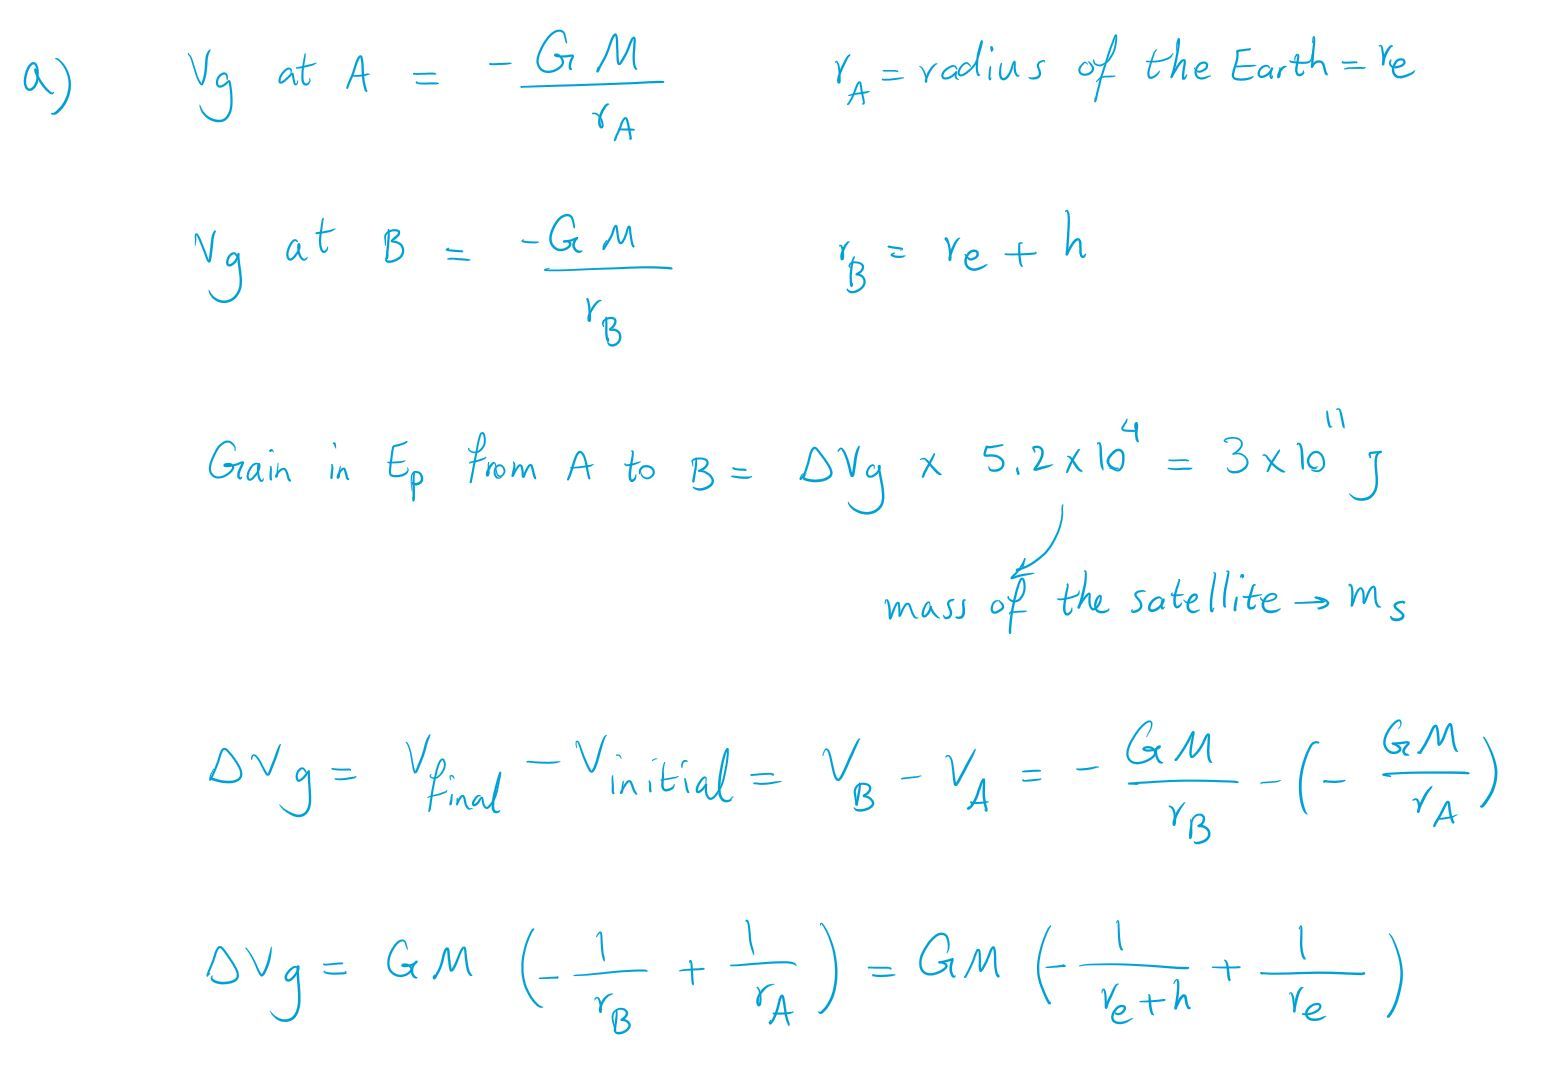 a) Vg at A = - GM / rA    rA = radius of the Earth = re
Vg at B = -GM / rB    rB = re + h
Gain in Ep from A to B = ΔVg × 5.2 × 10⁴ = 3 × 10¹¹ J
mass of the satellite → ms
ΔVg = Vfinal - Vinitial = VB - VA = - GM / rB - (- GM / rA)
ΔVg = GM (- 1 / rB + 1 / rA) = GM (- 1 / re+h + 1 / re)